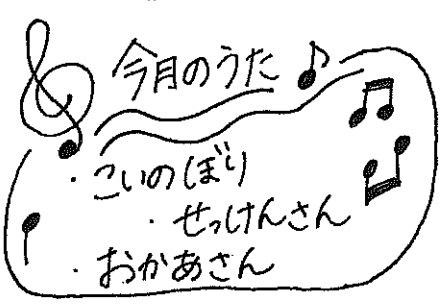 今月のうた
・こいのぼり
・せっけんさん
・おかあさん